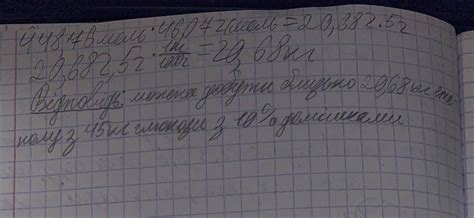 448,76 моль · 46,07 г/моль = 20,382.5г
20,682,5г · 1кг/1000г = 20,68кг
Відповідь: можна добути близько 20,68 кг
з 45кг глюкози з 10% домішками